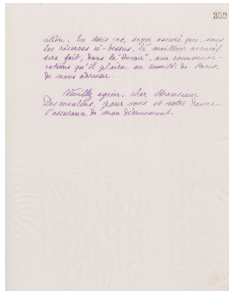 350
ention. En tous cas, soyez assuré que, sous
les réserves ci-dessus, le meilleur accueil
sera fait, dans la "Revue", aux communi-
cations qu'il plaira au comité de Paris,
de nous adresser.
Veuillez agréer, cher Monsieur
Desmoulins, pour vous et votre
l'assurance de mon dévouement.